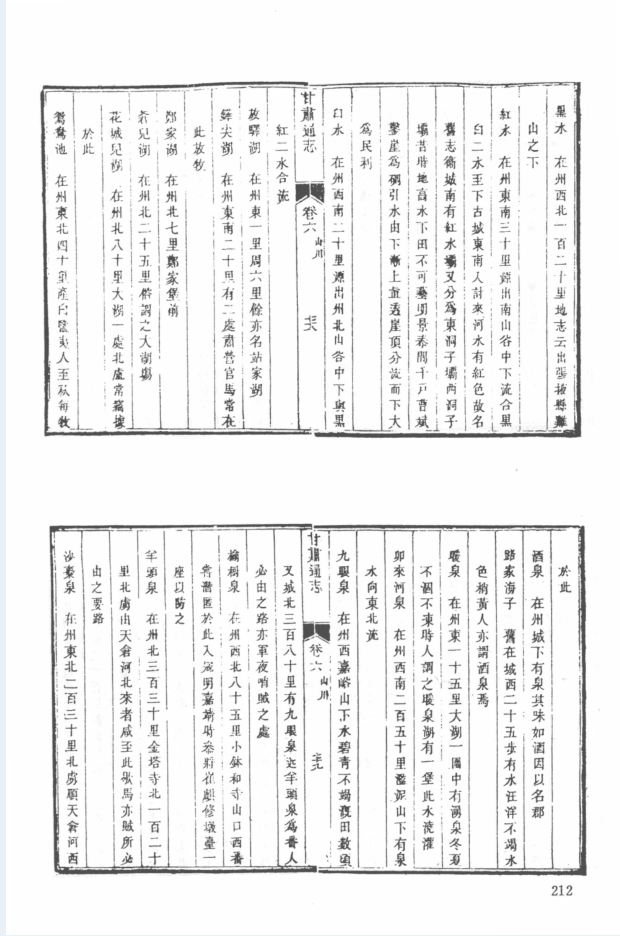 黑水　在州西北一百二十里地志云出張掖縣雞
山之下
紅水　在州東南三十里源出南山谷中下流合黑
白二水至下古城東南入討來河水有紅色故名
舊志衛城南有紅水壩又分為東洞子壩西洞子
壩昔時地高水下田不可藝明景泰間千戶曹斌
鑿崖為硐引水由下漸上直透崖頂分流而下大
為民利
白水　在州西南二十里源出州北山谷中下與黑
甘肅通志
卷六
山川
紅二水合流
放驛湖　在州東一里周六里餘亦名站家湖
鐸尖湖　在州東南二十里有二處肅營官馬常在
此放牧
鄭家湖　在州北七里鄭家堡前
在州北二十五里俗謂之大湖
花城兒湖　在州北八十里大湖一處北虜常竊據
於此
鴛鴦池　在州東北四十里產白鹽夷人至秋每牧
於此
酒泉　在州城下有泉其味如酒因以名郡
路家海子　舊在城西二十五步有水汪洋不竭水
色稍黃人亦謂酒泉焉
暖泉　在州東一十五里大湖一圍中有湧泉冬夏
不涸不凍時人謂之暖泉湖有一堡此水澆灌
卯來河泉　在州西南二百五十里山下有泉
水向東北流
九眼泉　在州西嘉峪山下水碧青不竭溉田數頃
甘肅通志
卷六
山川
又城北三百八十里有九眼泉迄羊頭泉為番人
必由之路亦軍夜哨賊之處
榆樹泉　在州西北八十五里小鉢和寺山口西番
嘗潛匿於此入寇明嘉靖時參將崔麒修墩臺一
座以防之
羊頭泉　在州北三百三十里金塔寺北一百二十
里北虜由天倉河北來者咸至此歇馬亦賊所必
由之要路
沙棗泉　在州東北二百三十里北虜順天倉河西
212